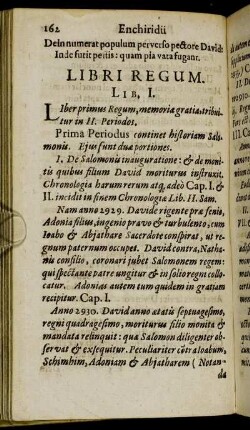 162 Enchiridii
Dein numerat populum perverso pectore David:
Inde furit pestis: quam pia vota fugant.
LIBRI REGUM.
LIB, I.
Liber primus Regum, memoria gratia distribuitur
in II. Periodos.
Prima Periodus continet historiam Salomonis.
Ejus sunt dua portiones.
I. De Salomonis inauguratione: & de monitis
quibus filium David moriturus instruxit.
Chronologia harum rerum atq; adeò Cap. I. &
II. incidit in finem Chronologia Lib. II. Sam.
Nam anno 2929. Davide rigente pra senio,
Adonia filius, ingenio pravo & turbulento, cum
Ioabo & Abjathare Sacerdote conspirat, ut regnum
paternum occupet. David contra, Nathanis
consilio, coronari jubet Salomonem regem:
qui spectante patre ungitur & in solio regni collocatur.
Adonias autem tum quidem in gratiam
recipitur. Cap. I.
Anno 2930. David anno atatis septuagesimo,
regni quadragesimo, moriturus filio monita &
mandata relinquit: qua Salomon diligenter observat
& exsequitur. Peculiariter contra Ioabum,
Schimhim, Adoniam & Abjatharem (Notan-
da